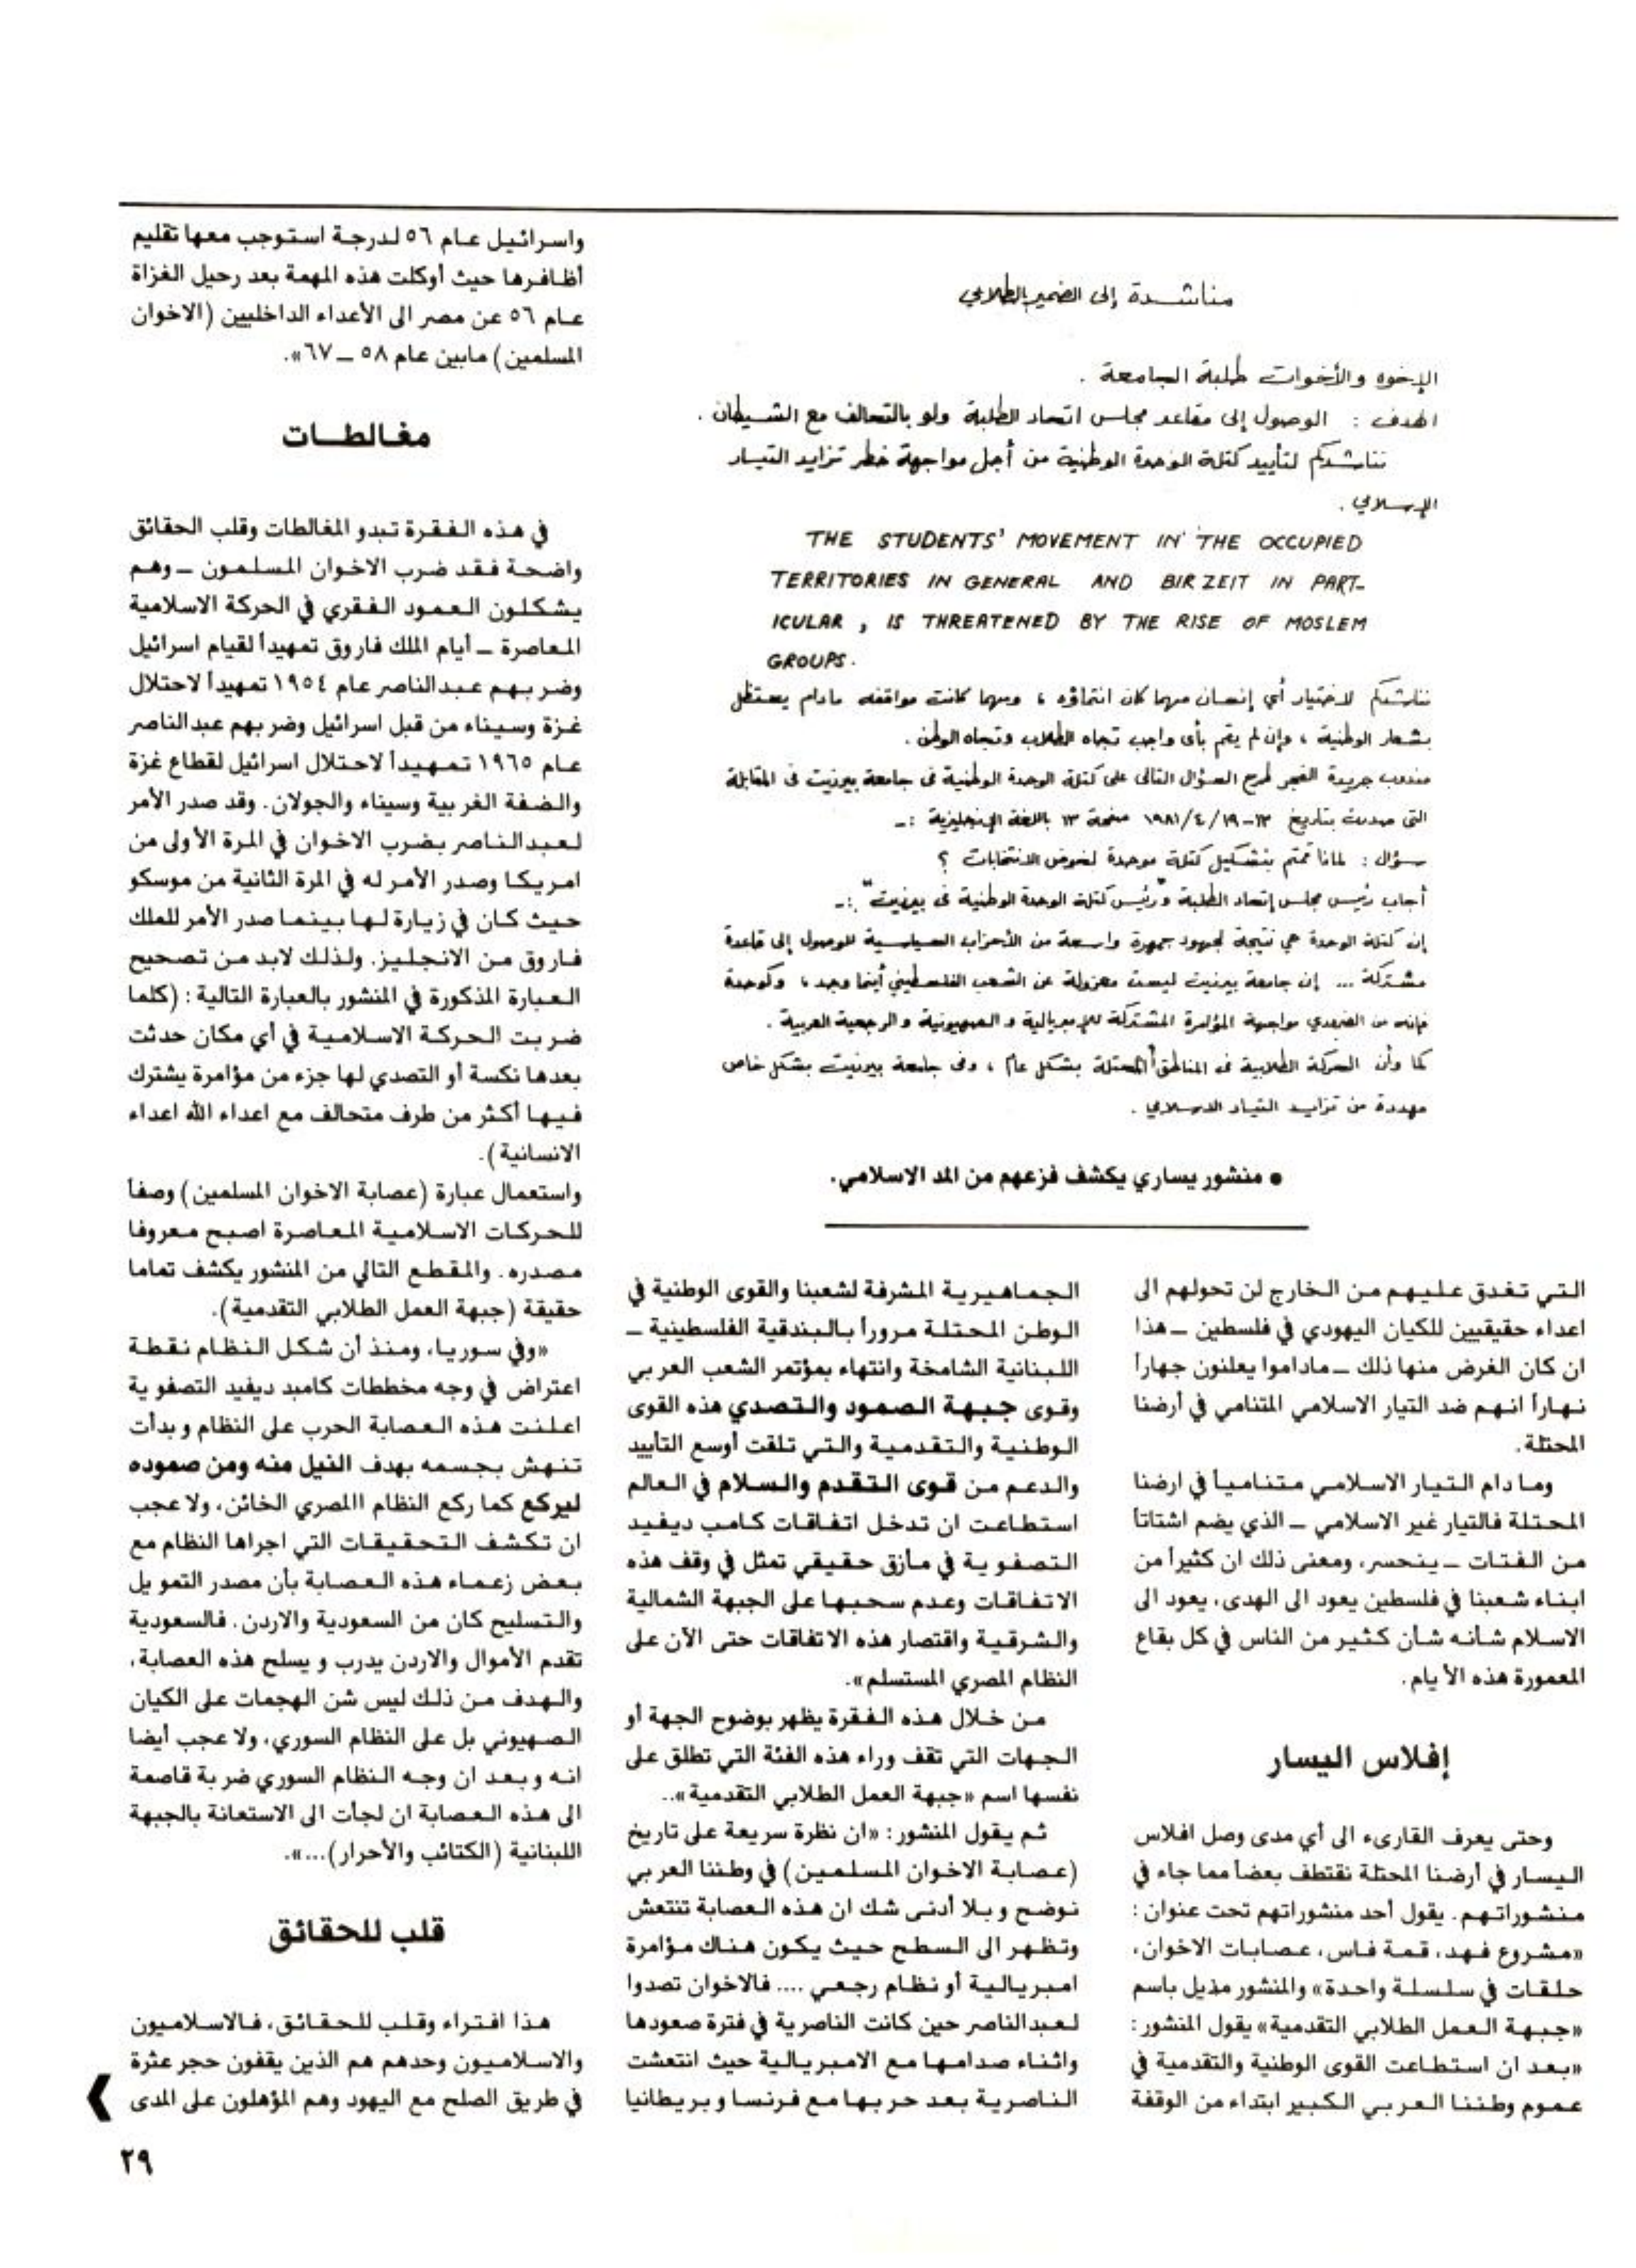 مناشدة إلى الضمير الطلابي
الإخوه والأخوات طلبة الجامعة .
الهدف : الوصول إلى مقاعد مجلس اتحاد الطلبة ولو بالتحالف مع الشيطان .
نناشدكم لتأييد كتلة الوحدة الوطنية من أجل مواجهة خطر تزايد التيار
الإسلامي .
THE STUDENTS' MOVEMENT IN THE OCCUPIED
TERRITORIES IN GENERAL AND BIR ZEIT IN PART-
ICULAR , IS THREATENED BY THE RISE OF MOSLEM
GROUPS.
نناشدكم لاختيار أي إنسان مهما كان انتماؤه ، ومهما كانت مواقفه مادام يستظل
بشعار الوطنية ، وإن لم يقم بأى واجب تجاه الطلاب وتجاه الوطن .
مندوب جريدة الفجر طرح السؤال التالى على كتلة الوحدة الوطنية فى جامعة بيرزيت فى المقابلة
التى صدرت بتاريخ ١٣-١٩/٤/١٩٨١ صفحة ١٣ باللغة الإنجليزية :-
سؤال : لماذا قمتم بتشكيل كتلة موحدة لخوض الانتخابات ؟
أجاب رئيس مجلس إتحاد الطلبة "ورئيس كتلة الوحدة الوطنية فى بيرزيت" :-
إن كتلة الوحدة هي نتيجة لجهود جمهرة واسعة من الأحزاب السياسية للوصول إلى قاعدة
مشتركة ... إن جامعة بيرزيت ليست معزولة عن الشعب الفلسطيني أينما وجد ، وكوحدة
فإنه من الضرورى مواجهة المؤامرة المشتركة للإمبريالية والصهيونية والرجعية العربية .
كما وأن الحركة الطلابية فى المناطق المحتلة بشكل عام ، وفى جامعة بيرزيت بشكل خاص
مهددة من تزايد التيار الاسلامي .
● منشور يساري يكشف فزعهم من المد الاسلامي.
التي تغدق عليهم من الخارج لن تحولهم الى
اعداء حقيقيين للكيان اليهودي في فلسطين ــ هذا
ان كان الغرض منها ذلك ــ ماداموا يعلنون جهاراً
نهاراً انهم ضد التيار الاسلامي المتنامي في أرضنا
المحتلة.
وما دام التيار الاسلامي متنامياً في ارضنا
المحتلة فالتيار غير الاسلامي ــ الذي يضم اشتاتاً
من الفتات ــ ينحسر، ومعنى ذلك ان كثيراً من
ابناء شعبنا في فلسطين يعود الى الهدى، يعود الى
الاسلام شأنه شأن كثير من الناس في كل بقاع
المعمورة هذه الأيام.
إفلاس اليسار
وحتى يعرف القارىء الى أي مدى وصل افلاس
اليسار في أرضنا المحتلة نقتطف بعضاً مما جاء في
منشوراتهم. يقول أحد منشوراتهم تحت عنوان :
«مشروع فهد، قمة فاس، عصابات الاخوان،
حلقات في سلسلة واحدة» والمنشور مذيل باسم
«جبهة العمل الطلابي التقدمية» يقول المنشور :
«بعد ان استطاعت القوى الوطنية والتقدمية في
عموم وطننا العربي الكبير ابتداء من الوقفة
الجماهيرية المشرفة لشعبنا والقوى الوطنية في
الوطن المحتلة مروراً بالبندقية الفلسطينية ــ
اللبنانية الشامخة وانتهاء بمؤتمر الشعب العربي
وقوى جبهة الصمود والتصدي هذه القوى
الوطنية والتقدمية والتي تلقت أوسع التأييد
والدعم من قوى التقدم والسلام في العالم
استطاعت ان تدخل اتفاقات كامب ديفيد
التصفوية في مأزق حقيقي تمثل في وقف هذه
الاتفاقات وعدم سحبها على الجبهة الشمالية
والشرقية واقتصار هذه الاتفاقات حتى الآن على
النظام المصري المستسلم».
من خلال هذه الفقرة يظهر بوضوح الجهة أو
الجهات التي تقف وراء هذه الفئة التي تطلق على
نفسها اسم «جبهة العمل الطلابي التقدمية»..
ثم يقول المنشور : «ان نظرة سريعة على تاريخ
(عصابة الاخوان المسلمين) في وطننا العربي
نوضح وبلا أدنى شك ان هذه العصابة تنتعش
وتظهر الى السطح حيث يكون هناك مؤامرة
امبريالية أو نظام رجعي .... فالاخوان تصدوا
لعبدالناصر حين كانت الناصرية في فترة صعودها
واثناء صدامها مع الامبريالية حيث انتعشت
الناصرية بعد حربها مع فرنسا وبريطانيا
واسرائيل عام ٥٦ لدرجة استوجب معها تقليم
أظافرها حيث أوكلت هذه المهمة بعد رحيل الغزاة
عام ٥٦ عن مصر الى الأعداء الداخليين (الاخوان
المسلمين) مابين عام ٥٨ ــ ٦٧».
مغالطات
في هذه الفقرة تبدو المغالطات وقلب الحقائق
واضحة فقد ضرب الاخوان المسلمون ــ وهم
يشكلون العمود الفقري في الحركة الاسلامية
المعاصرة ــ أيام الملك فاروق تمهيداً لقيام اسرائيل
وضربهم عبدالناصر عام ١٩٥٤ تمهيداً لاحتلال
غزة وسيناء من قبل اسرائيل وضربهم عبدالناصر
عام ١٩٦٥ تمهيداً لاحتلال اسرائيل لقطاع غزة
والضفة الغربية وسيناء والجولان. وقد صدر الأمر
لعبدالناصر بضرب الاخوان في المرة الأولى من
امريكا وصدر الأمر له في المرة الثانية من موسكو
حيث كان في زيارة لها بينما صدر الأمر للملك
فاروق من الانجليز. ولذلك لابد من تصحيح
العبارة المذكورة في المنشور بالعبارة التالية : (كلما
ضربت الحركة الاسلامية في أي مكان حدثت
بعدها نكسة أو التصدي لها جزء من مؤامرة يشترك
فيها أكثر من طرف متحالف مع اعداء الله اعداء
الانسانية).
واستعمال عبارة (عصابة الاخوان المسلمين) وصفاً
للحركات الاسلامية المعاصرة اصبح معروفا
مصدره. والمقطع التالي من المنشور يكشف تماما
حقيقة (جبهة العمل الطلابي التقدمية).
«وفي سوريا، ومنذ أن شكل النظام نقطة
اعتراض في وجه مخططات كامبد ديفيد التصفوية
اعلنت هذه العصابة الحرب على النظام وبدأت
تنهش بجسمه بهدف النيل منه ومن صموده
ليركع كما ركع النظام االمصري الخائن، ولا عجب
ان تكشف التحقيقات التي اجراها النظام مع
بعض زعماء هذه العصابة بأن مصدر التمويل
والتسليح كان من السعودية والاردن. فالسعودية
تقدم الأموال والاردن يدرب ويسلح هذه العصابة،
والهدف من ذلك ليس شن الهجمات على الكيان
الصهيوني بل على النظام السوري، ولا عجب أيضا
انه وبعد ان وجه النظام السوري ضربة قاصمة
الى هذه العصابة ان لجأت الى الاستعانة بالجبهة
اللبنانية (الكتائب والأحرار)...».
قلب للحقائق
هذا افتراء وقلب للحقائق، فالاسلاميون
والاسلاميون وحدهم هم الذين يقفون حجر عثرة
في طريق الصلح مع اليهود وهم المؤهلون على المدى
٢٩